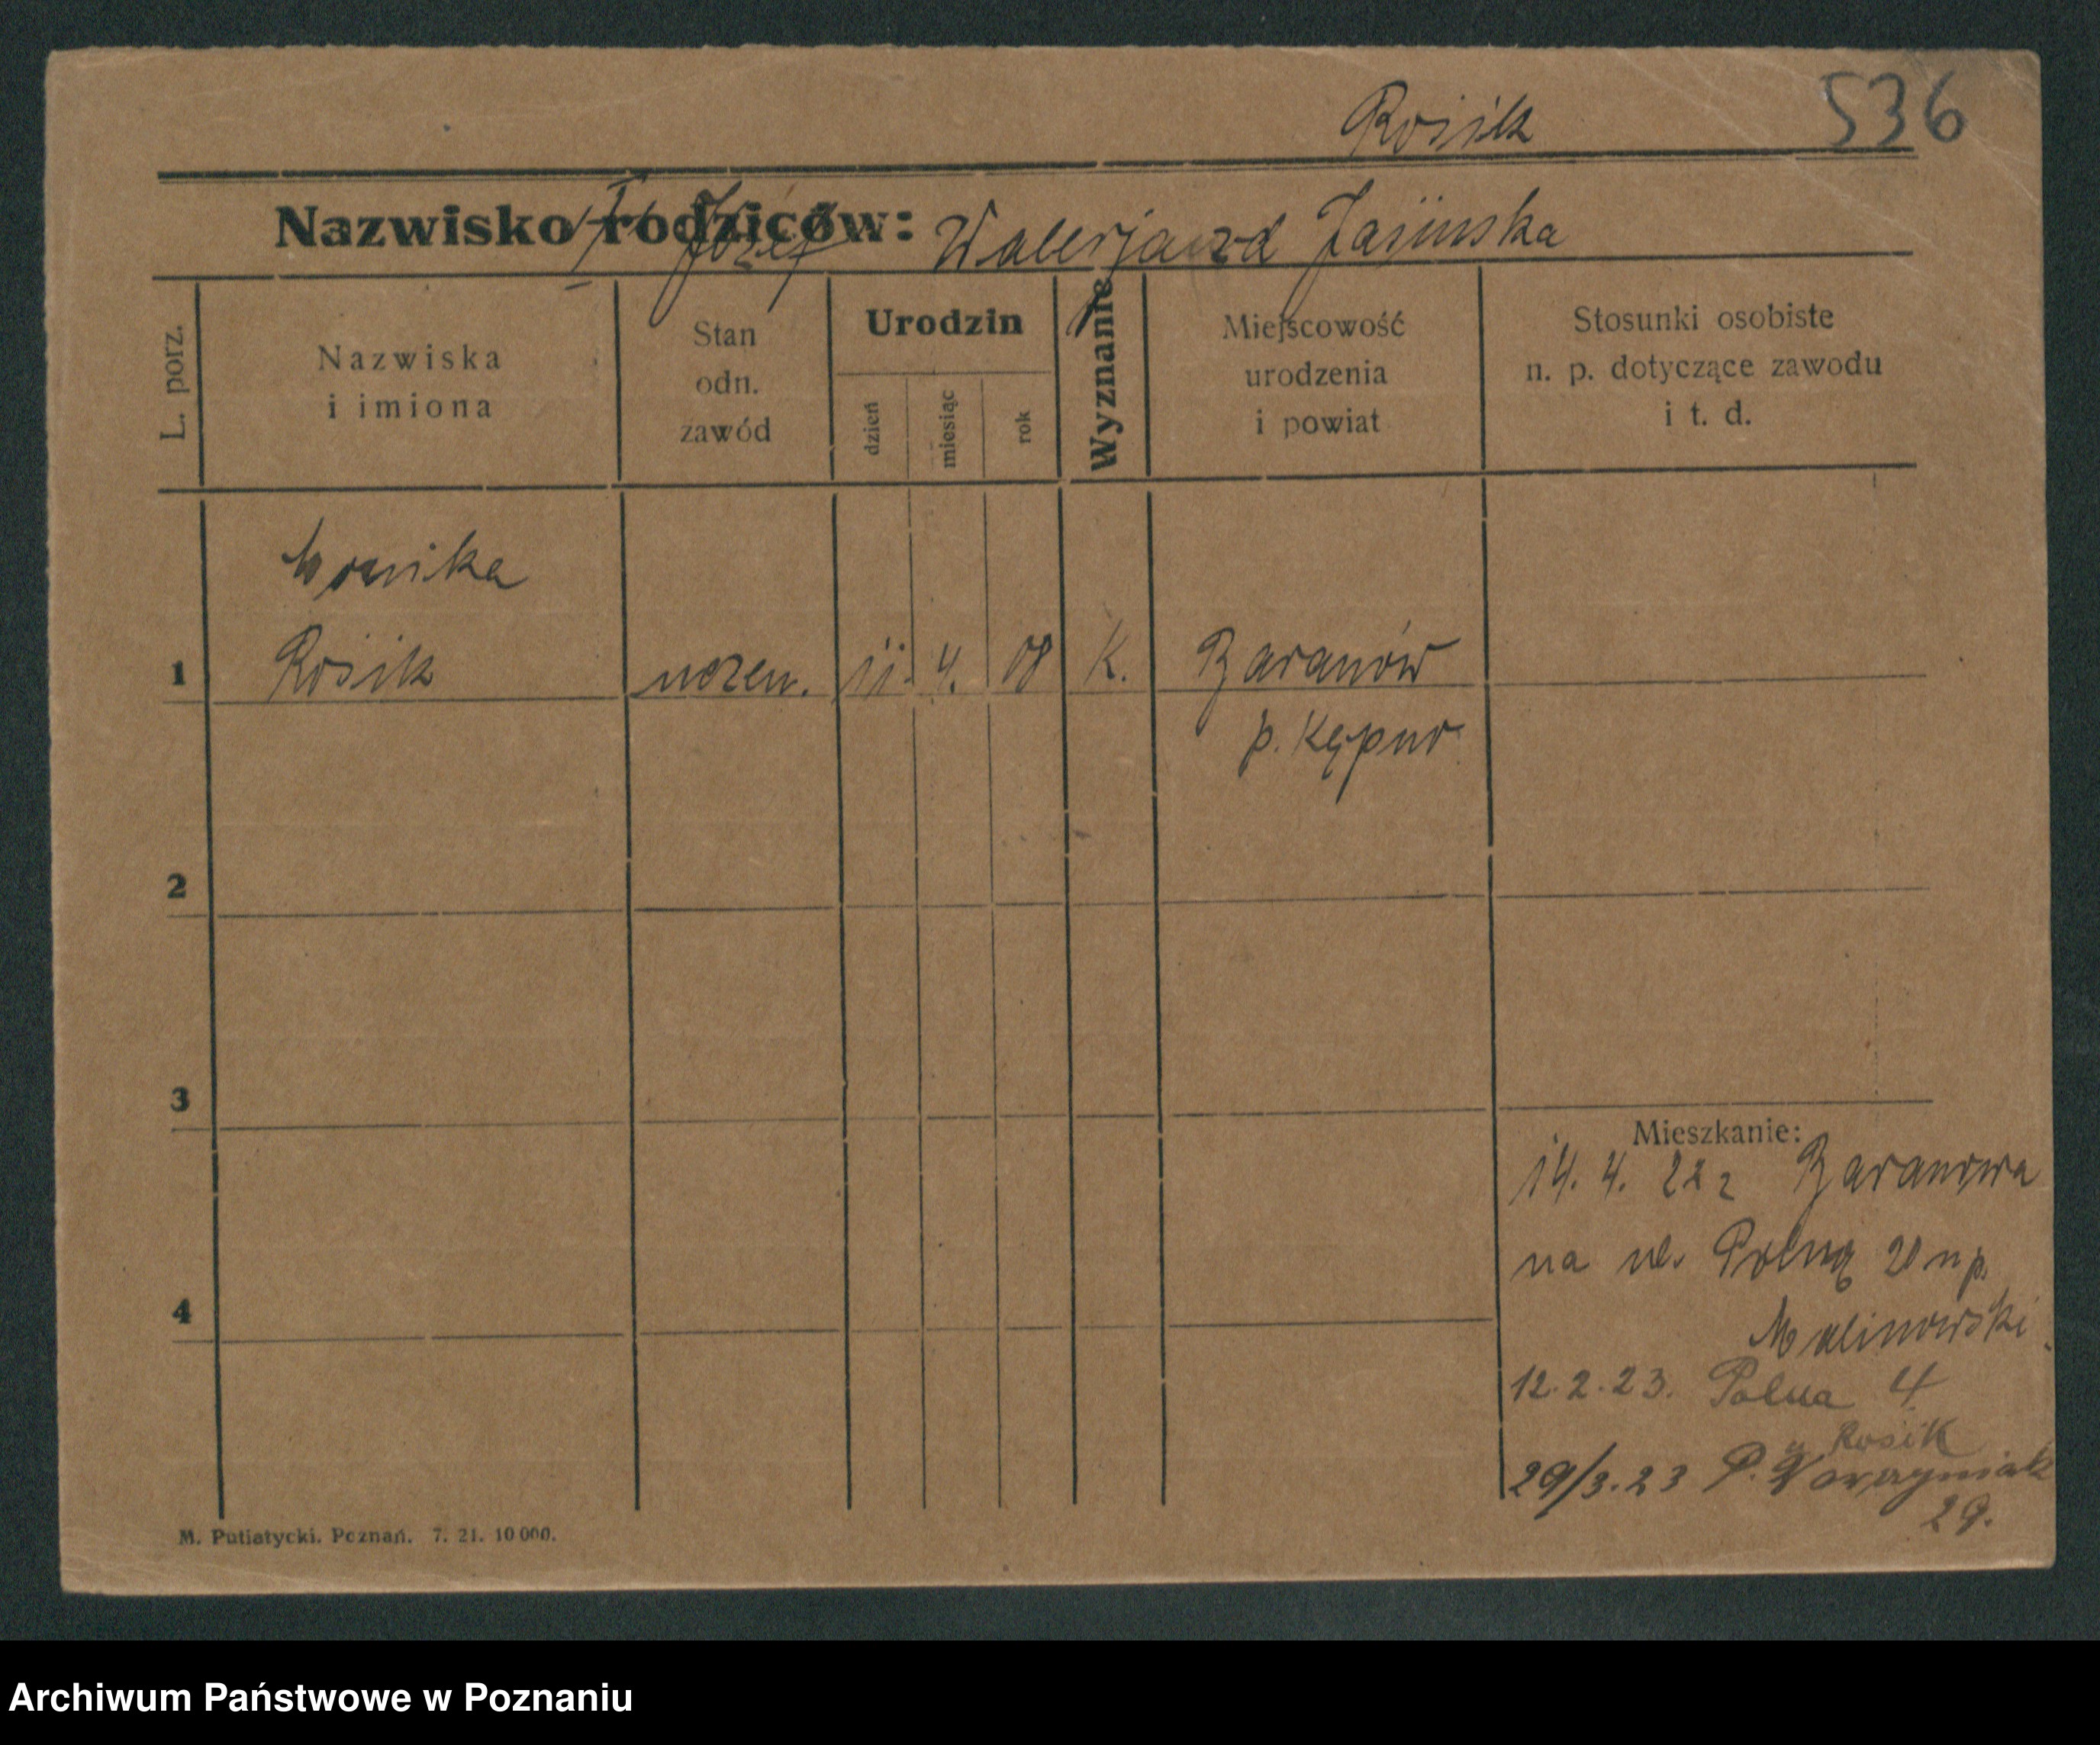 Rosik 536
Nazwisko rodziców: Józef Walerja zd Jasińska
L. porz.
Nazwiska
i imiona
Stan
odn.
zawód
Urodzin
dzień
miesiąc
rok
Wyznanie
Miejscowość
urodzenia
i powiat
Stosunki osobiste
n. p. dotyczące zawodu
i t. d.
Monika
1 Rosik uczen. 11. 4. 08 K. Baranów
p. Kępno
2
3
4
Mieszkanie:
14. 4. 22 z Baranowa
na ul. Polną 20 u p.
Malinowski
12.2.23. Polna 4
u Rosik
29/3.23 P. Wawrzyniak
29.
M. Putiatycki, Poznań. 7. 21. 10 000.
Archiwum Państwowe w Poznaniu